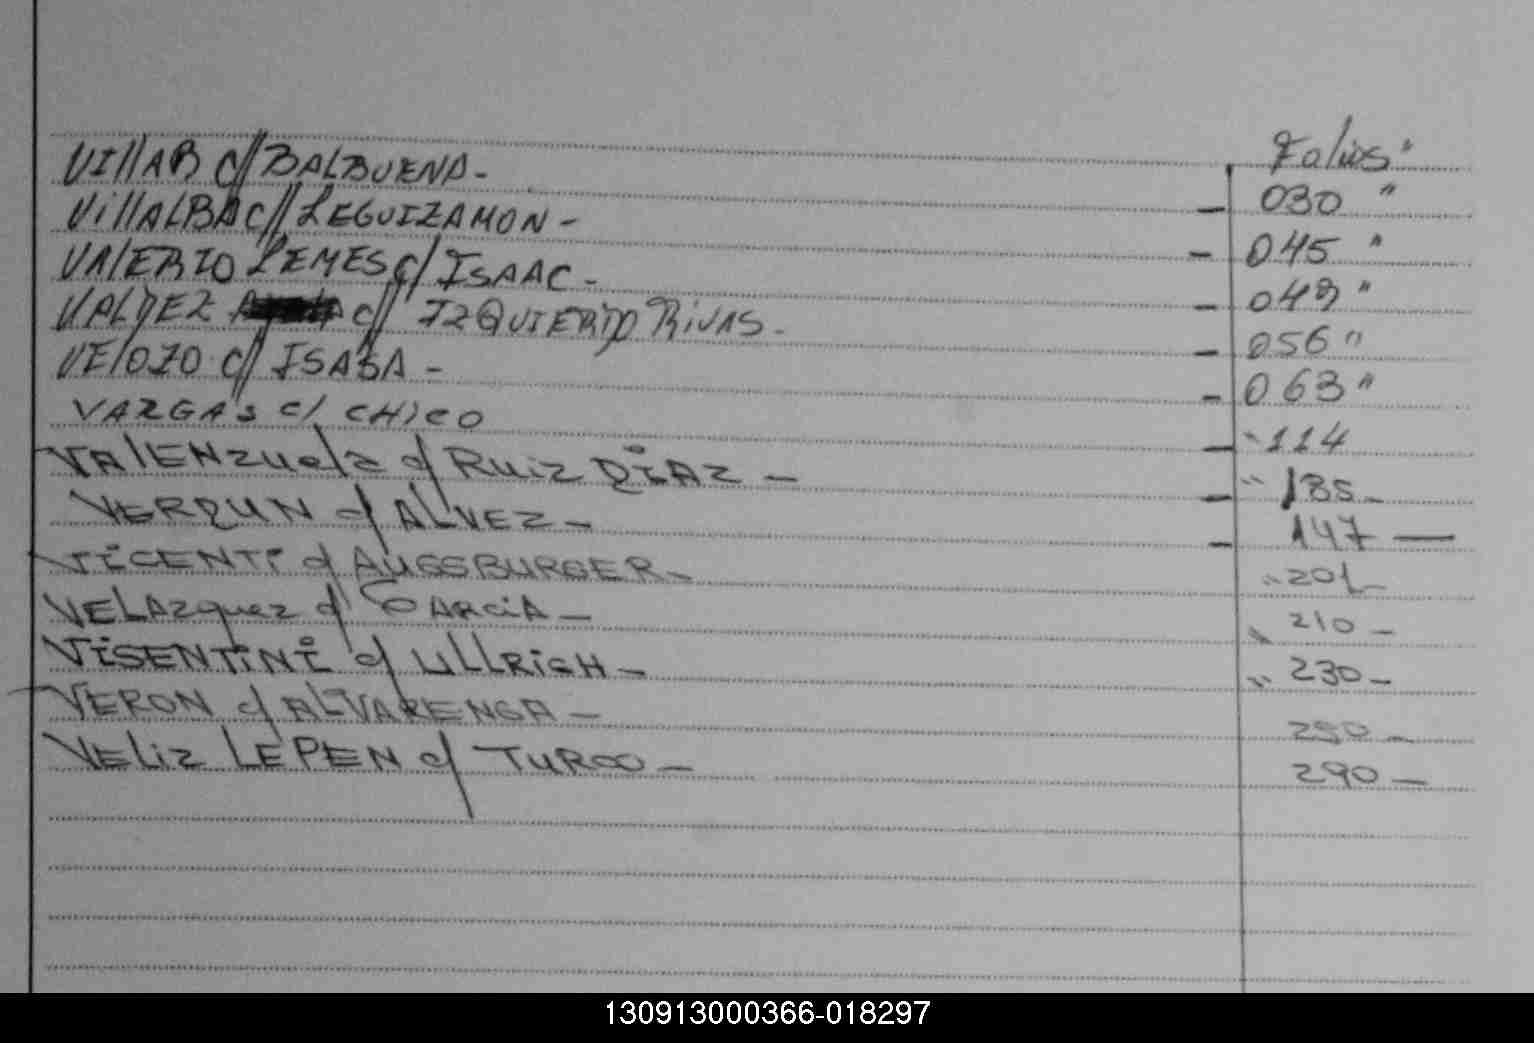 Folios"
VILLAR c/ BALBUENA - - 030 "
VILLALBA c/ LEGUIZAMON - - 045 "
VALERIO LEMES c/ ISAAC - - 049 "
VALDEZ c/ IZQUIERDO RIVAS - - 056 "
VELOZO c/ ISASA - - 063 "
VARGAS c/ CHICO - " 114
VALENZUELA c/ RUIZ DIAZ - - " 135 -
VERDUN c/ ALVEZ - - 147 -
VICENTI c/ AUGSBURGER - " 201 -
VELAZQUEZ c/ GARCIA - " 210 -
VISENTINI c/ ULLRICH - " 230 -
VERON c/ ALVARENGA - -
VELIZ LEPEN c/ TURCO - 290 -
130913000366-018297